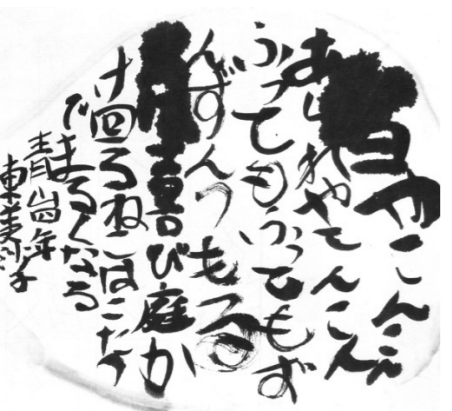 雪やこんこん
あられやこんこん
ふってもふってもず
んずんつもる
喜び庭か
け回るねこはこたつ
でまるくなる
青山四年
東美